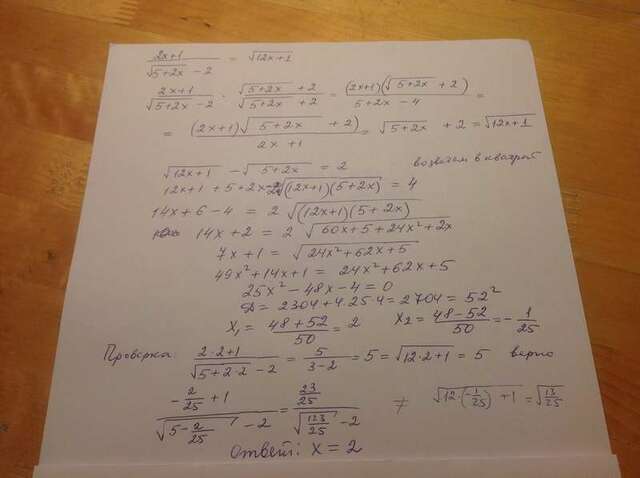 (2x+1)/(√(5+2x) - 2) = √(12x+1)
(2x+1)/(√(5+2x) - 2) · (√(5+2x) + 2)/(√(5+2x) + 2) = ((2x+1)(√(5+2x) + 2))/(5+2x-4) =
= ((2x+1)(√(5+2x) + 2))/(2x+1) = √(5+2x) + 2 = √(12x+1)
√(12x+1) - √(5+2x) = 2 возведем в квадрат
12x+1 + 5+2x - 2√((12x+1)(5+2x)) = 4
14x+6-4 = 2√((12x+1)(5+2x))
14x+2 = 2√(60x+5+24x²+2x)
7x+1 = √(24x²+62x+5)
49x²+14x+1 = 24x²+62x+5
25x²-48x-4=0
D = 2304+4·25·4=2704=52²
x₁ = (48+52)/50 = 2 x₂ = (48-52)/50 = -1/25
Проверка (2·2+1)/(√(5+2·2) - 2) = 5/(3-2) = 5 = √(12·2+1) = 5 верно
(-2/25 + 1)/(√(5-2/25) - 2) = (23/25)/(√(123/25) - 2) ≠ √(12·(-1/25)+1) = √(13/25)
Ответ: x = 2